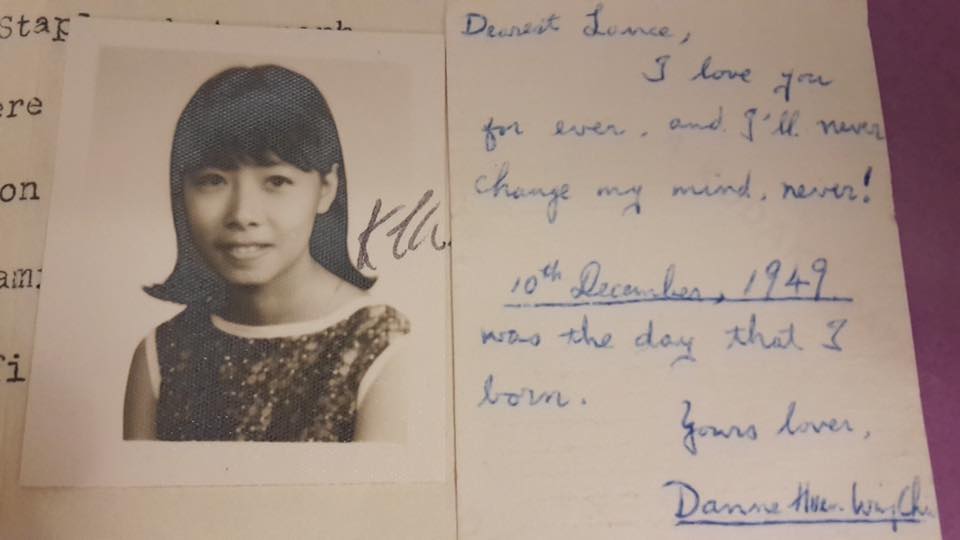 Stap
ere
on
am
fi
Dearest Lance,
I love you
for ever, and I'll never
change my mind, never!
10th December, 1949
was the day that I
born.
Yours lover,
Danne